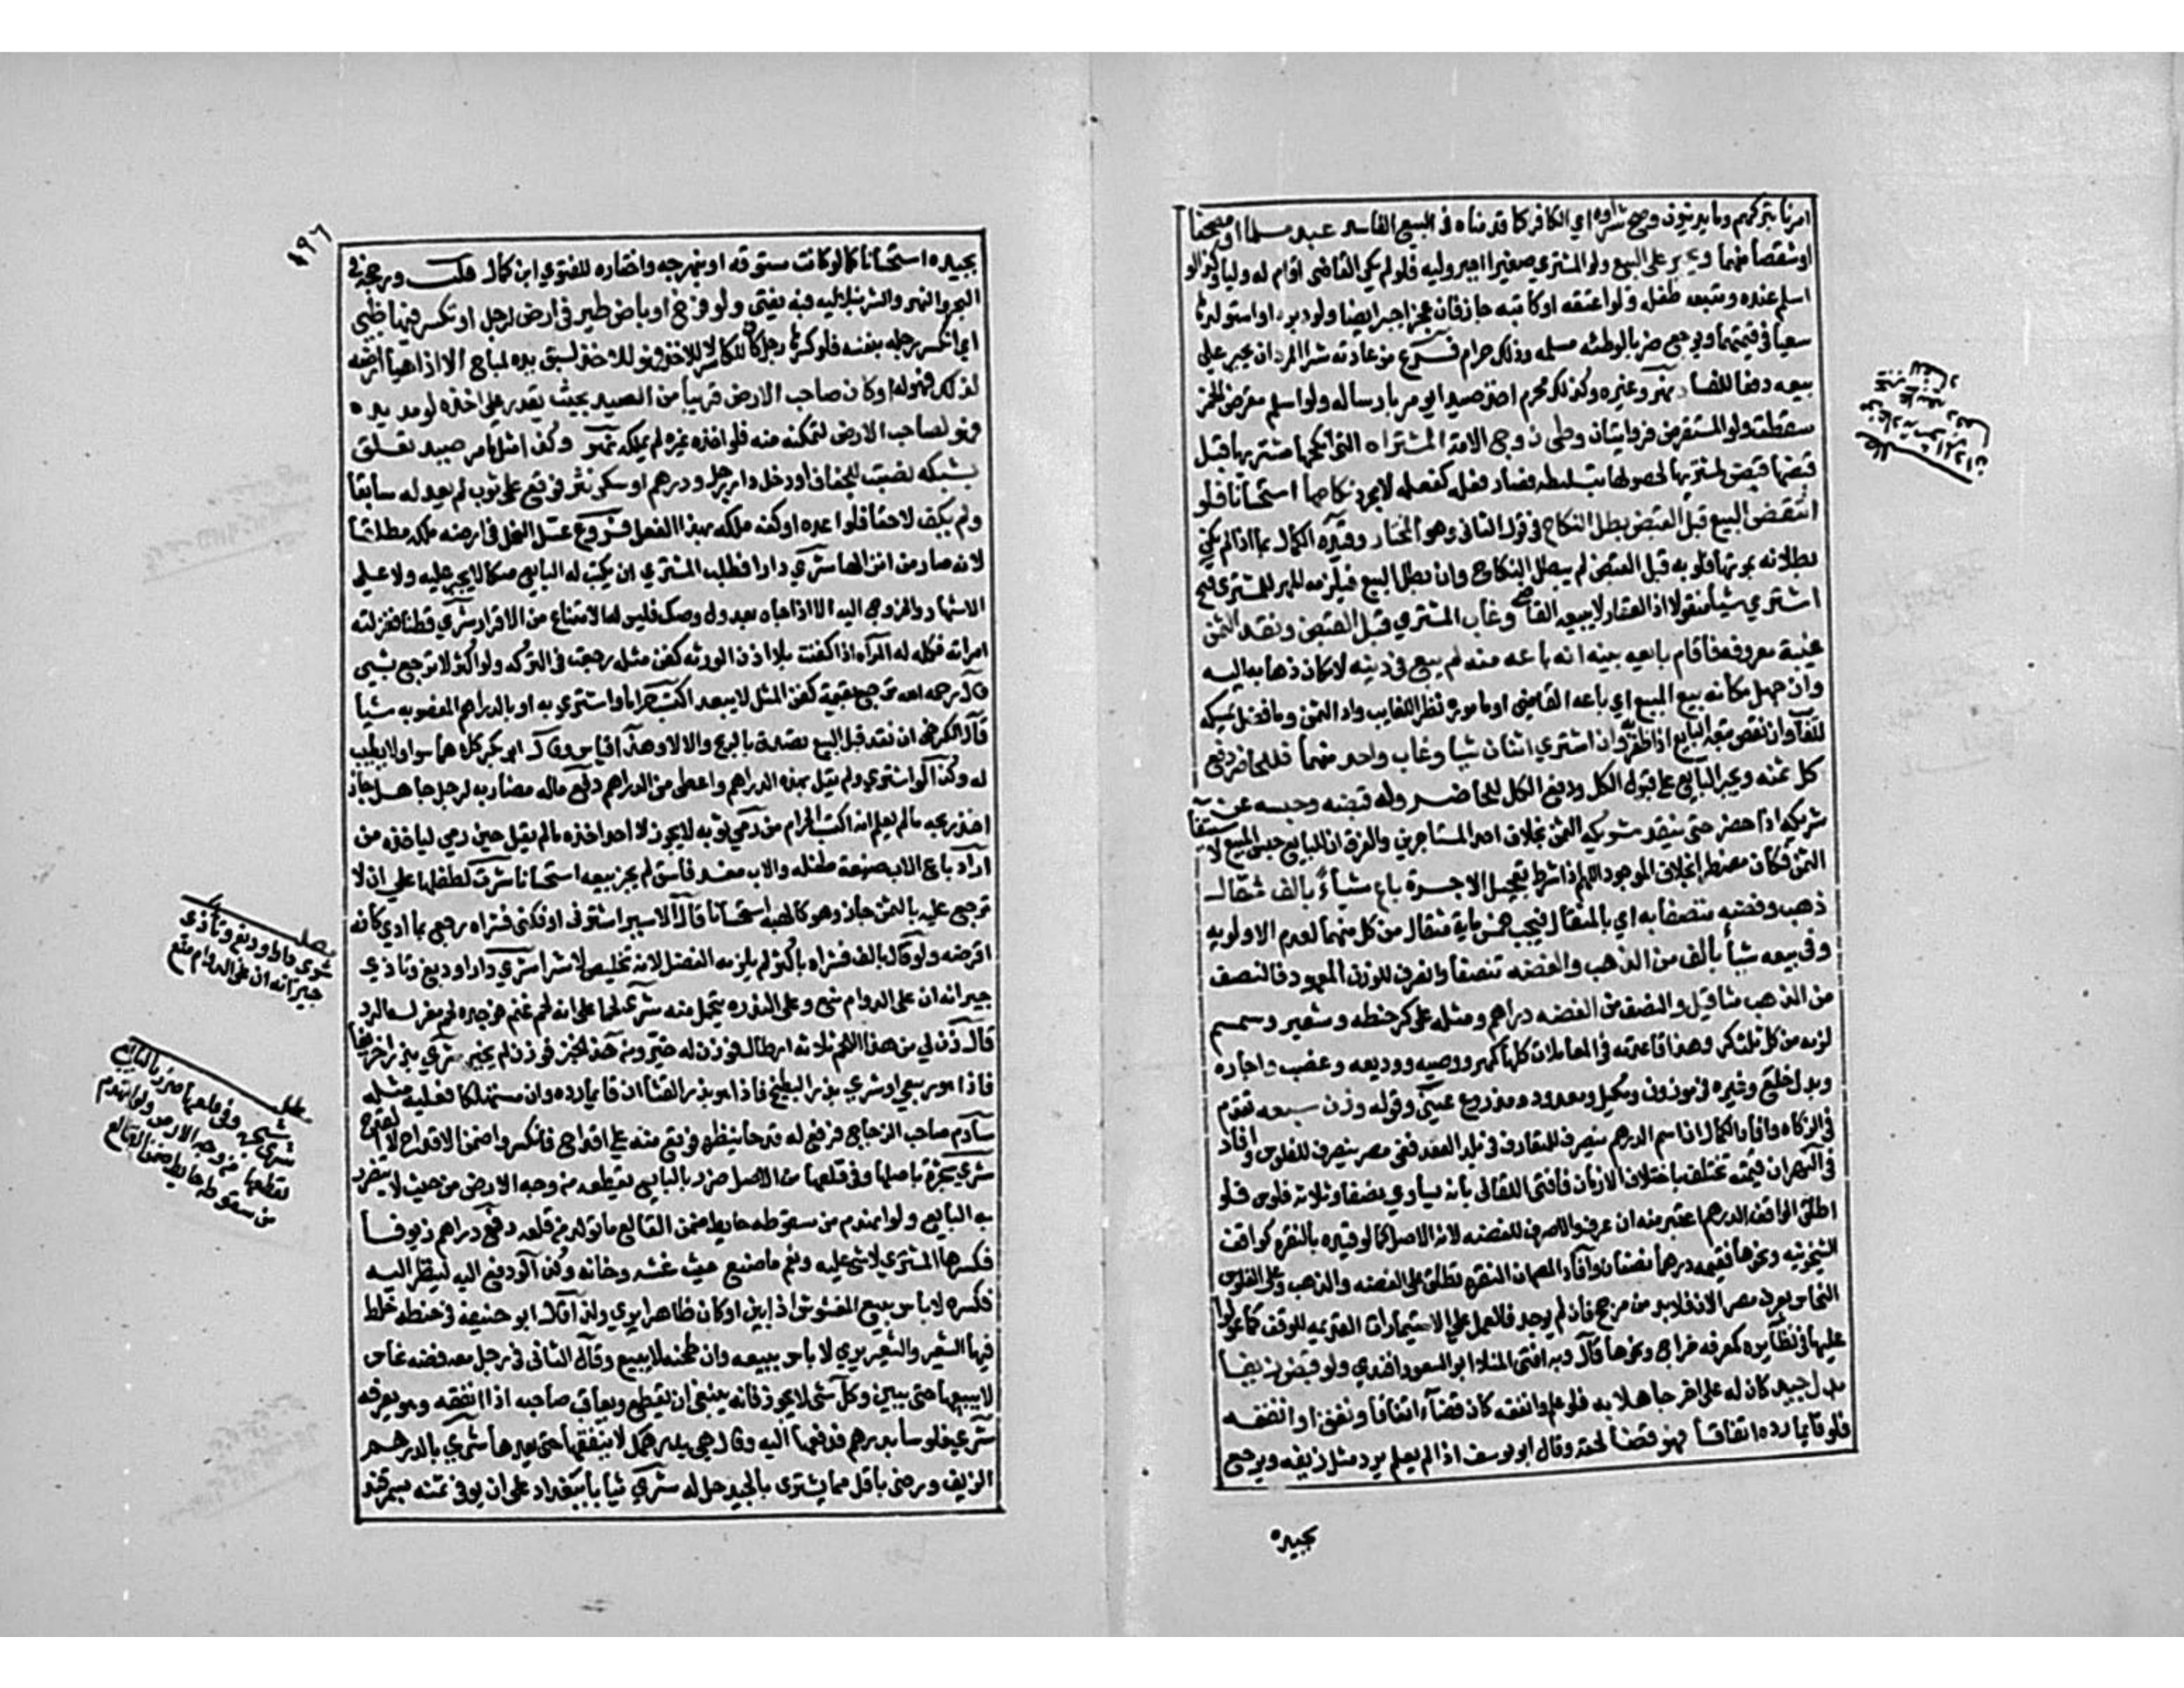 امرنا بتركهم وما يدينون وصح شراوه اي الكافر كما قدمناه في البيع الفاسد عبدا مسلما او مصحفا
او شقصا منهما ويجبر على البيع ولو المشتري صغيرا اجبر وليه فلو لم يكن القاضي اقام له وليا وكذا لو
اسلم عنده ويتبعه طفله ولو اعتقه او كاتبه جاز فان عجز اجبر ايضا ولو دبره او استولدها
سعيا في قيمتهما ويوجع ضربا لوطئه مسلمه وذلك حرام فروع من عادته شرا المردان يجبر على
بيعه دفعا للفساد نهر وغيره وكذلك محرم اخذ صيدا يومر بارساله ولو اسلم مقرض الخمر
سقطت ولو المستقرض فروايتان وطى زوج الامة المشتراه التي انكحها مشتريها قبل
قبضها قبض لمشتريها لحصولها بتسليطه فصار فعله كفعله لا مجرد نكاحها استحسانا فلو
انتقض البيع قبل القبض بطل النكاح في قول الثاني وهو المختار وقيده الكمال بما اذا لم يكن
بطلانه بموتها فلو به قبل القبض لم يبطل النكاح وان بطل البيع فيلزمه المهر للمشتري فتح
اشترى شيأ منقولا اذ العقار لا يبيعه القاضي وغاب المشتري قبل القبض ونقد الثمن
غيبة معروفة فاقام بايعه بينه انه باعه منه لم يبع في دينه لامكان ذهابه اليه
وان جهل مكانه بيع المبيع اي باعه القاضي او ماموره نظرا للغايب وادا الثمن وما فضل يمسكه
للغائب وان نقص تبعه البايع اذا ظفر وان اشترى اثنان شيا وغاب واحد منهما فللحاضر دفع
كل ثمنه ويجبر البايع على قبول الكل ودفع الكل للحاضر وله قبضه وحبسه عن
شريكه اذا حضر حتى ينقد شريكه الثمن بخلاف احد المستاجرين والفرق ان للبايع حبس المبيع لاستيفا
الثمن فكان مضطرا بخلاف الموجر اللهم الا اذا شرط تعجيل الاجرة باع شيأ بالف مثقال
ذهب وفضه تنصفا به اي بالمثقال فيجب خمس ماية مثقال من كل منهما لعدم الاولويه
وفي بيعه شيأ بالف من الذهب والفضه تنصفا وانصرف للوزن المعهود فالنصف
من الذهب مثاقيل والنصف من الفضه دراهم ومثله على كر حنطه وشعير وسمسم
لزمه من كل ثلث كر وهذا قاعدته في المعاملات كلها كمهر ووصيه ووديعه وغصب واجاره
وبدل خلع وغيره في موزون ومكيل ومعدود ومذروع عيني وقوله وزن سبعه تقدم
في الزكاه وافاد الكمال ان اسم الدرهم ينصرف للمتعارف في بلد العقد ففي مصر ينصرف للفلوس وافاد
في النهر ان قيمته تختلف باختلاف الازمان فافتى اللقاني بانه يساوي نصفا وثلاثه فلوس فلو
اطلق الواقف الدرهم اعتبر زمنه ان عرف والا صرف للفضه لانه الاصل كما لو قيده بالنقره كواقف
الشيخونيه ونحوها فقيمة درهمها نصفان وافاد المصنف ان النقره تطلق على الفضه والذهب وعلى الفلوس
النحاس بعرف مصر الان فلابد من مرجح فان لم يوجد فالعمل على الاستيمارات القديمه للوقف كما عولوا
عليها في نظايره كمعرفه خراج ونحوها قال وبه افتى المنلا ابو السعود افندي ولو قبض زيفا
بدل جيد كان له على اخر جاهلا به فلو علم وانفقه كان قضاء اتفاقا ونفق او انفقه
فلو قايما رده اتفاقا فهو قضا لحقه وقال ابو يوسف اذا لم يعلم يرد مثل زيفه ويرجع
بجيده
٤٩٦
بجيده استحسانا كما لو كانت ستوقه او نبهرجه واختاره للفتوي ابن كمال قلت ورجحه في
البحر والنهر والشرنبلاليه فبه يفتى ولو فرخ او باض طير في ارض لرجل او تكسر فيها ظبي
اي انكسر رجله بنفسه فلو كسرها رجل كان للكاسر لا للاخذ فهو للاخذ لسبق يده لمباح الا اذا هيا ارضه
لذلك فهو له او كان صاحب الارض قريبا من الصيد بحيث يقدر على اخذه لو مد يده
فهو لصاحب الارض لتمكنه منه فلو اخذه غيره لم يملكه نهر وكذا مثل ما مر صيد تعلق
بشبكه نصبت للجفاف او دخل دار رجل ودرهم او سكر نثر فوقع على ثوب لم يعد له سابقا
ولم يكف لاحقا فلو اعده او كفه ملكه بهذا الفعل فروع عسل النحل في ارضه ملكه مطلقا
لانه صار من انزالها شرى دارا فطلب المشتري ان يكتب له البايع صكا لا يجبر عليه ولا على
الاشهاد والخروج اليه الا اذا جاه بعدول وصك فليس له الامتناع من الاقرار شرى قطنا فغزلته
امراته فكله له المراه اذا كفنت بلا اذن الورثه كفن مثله رجعت في التركه ولو اكثر لا ترجع بشي
قال رحمه الله ترجع بقيمة كفن المثل لا يبعد اكتسب حراما واشترى به او بالدراهم المغصوبه شيأ
قال الكرخي ان نقد قبل البيع تصدق بالربح والا لا وهذا قياس وقال ابو بكر كلاهما سوا ولا يطيب
له وكذا لو اشترى ولم يقل بهذه الدراهم واعطى من الدراهم دفع ماله مضاربه لرجل جاهل جاز
اخذ ربحه مالم يعلم انه اكتسب الحرام من رمى ثوبه لا يجوز لاحد اخذه مالم يقل حين رمى لياخذه من
اراد باع الاب ضيعة طفله والاب مفسد فاسق لم يجز بيعه استحسانا شرت لطفلها على ان لا
ترجع عليه بالثمن جاز وهو كالهبه استحسانا قال الاسير اشترني او فكني فشراه رجع بما ادي كانه
اقرضه ولو قال بالف فشراه باكثر لم يلزمه الفضل لانه تخليص لا شرا شري دارا ودبغ وتاذي
جيرانه ان على الدوام منع وعلى الندره يتحمل منه شرى لحما على انه لحم غنم فوجده لحم معز له الرد
قال زن لي من هذا اللحم ثلاثه ارطال فوزن له خير ومن هذا الخبز فوزن لم يخير شري بذرا خريفيا
فاذا هو ربيعي او شري بذر البطيخ فاذا هو بذر القثا ان قايما رده وان مستهلكا فعليه مثله
ساوم صاحب الزجاج فرفع له قدحا ينظره فوقع منه على اقداح فانكسروا ضمن الاقداح لا القدح
شري شجرة باصلها وفي قلعها من الاصل ضرر بالبايع يقطعه من وجه الارض من حيث لا يتضرر
به البايع ولو انهدم من سقوطه حايط ضمن القالع ما تولد من قلعه دفع دراهم زيوفا
فكسرها المشتري لا شي عليه ونعم ما صنع حيث غشه وخانه وكذا لو دفع اليه لينظر اليه
فكسره لا باس ببيع المغشوش اذا بين او كان ظاهرا يرى ولذا قال ابو حنيفه في حنطه خلط
فيها الشعير والشعير يرى لا باس ببيعه وان طحنه لا يبيع وقال الثاني في رجل معه فضه نحاس
لا يبيعها حتى يبين وكل شي لا يجوز فانه ينبغي ان يقطع ويعاقب صاحبه اذا انفقه وهو يعرفه
شرى فلوسا بدرهم فدفعها اليه وقال هي بدرهمك لا ينفقها حتى يعدها شري بالدرهم
الزيف ورضى باقل مما يشتري بالجيد حل له شري ثيابا ببغداد على ان يوفي ثمنه بسمرقند
مطلب
شري دارا ودبغ وتاذي
جيرانه ان على الدوام منع
مطلب
شري شجره وفي قلعها ضرر بالبايع
يقطعها من وجه الارض ولو انهدم
من سقوطه حايط ضمن القالع